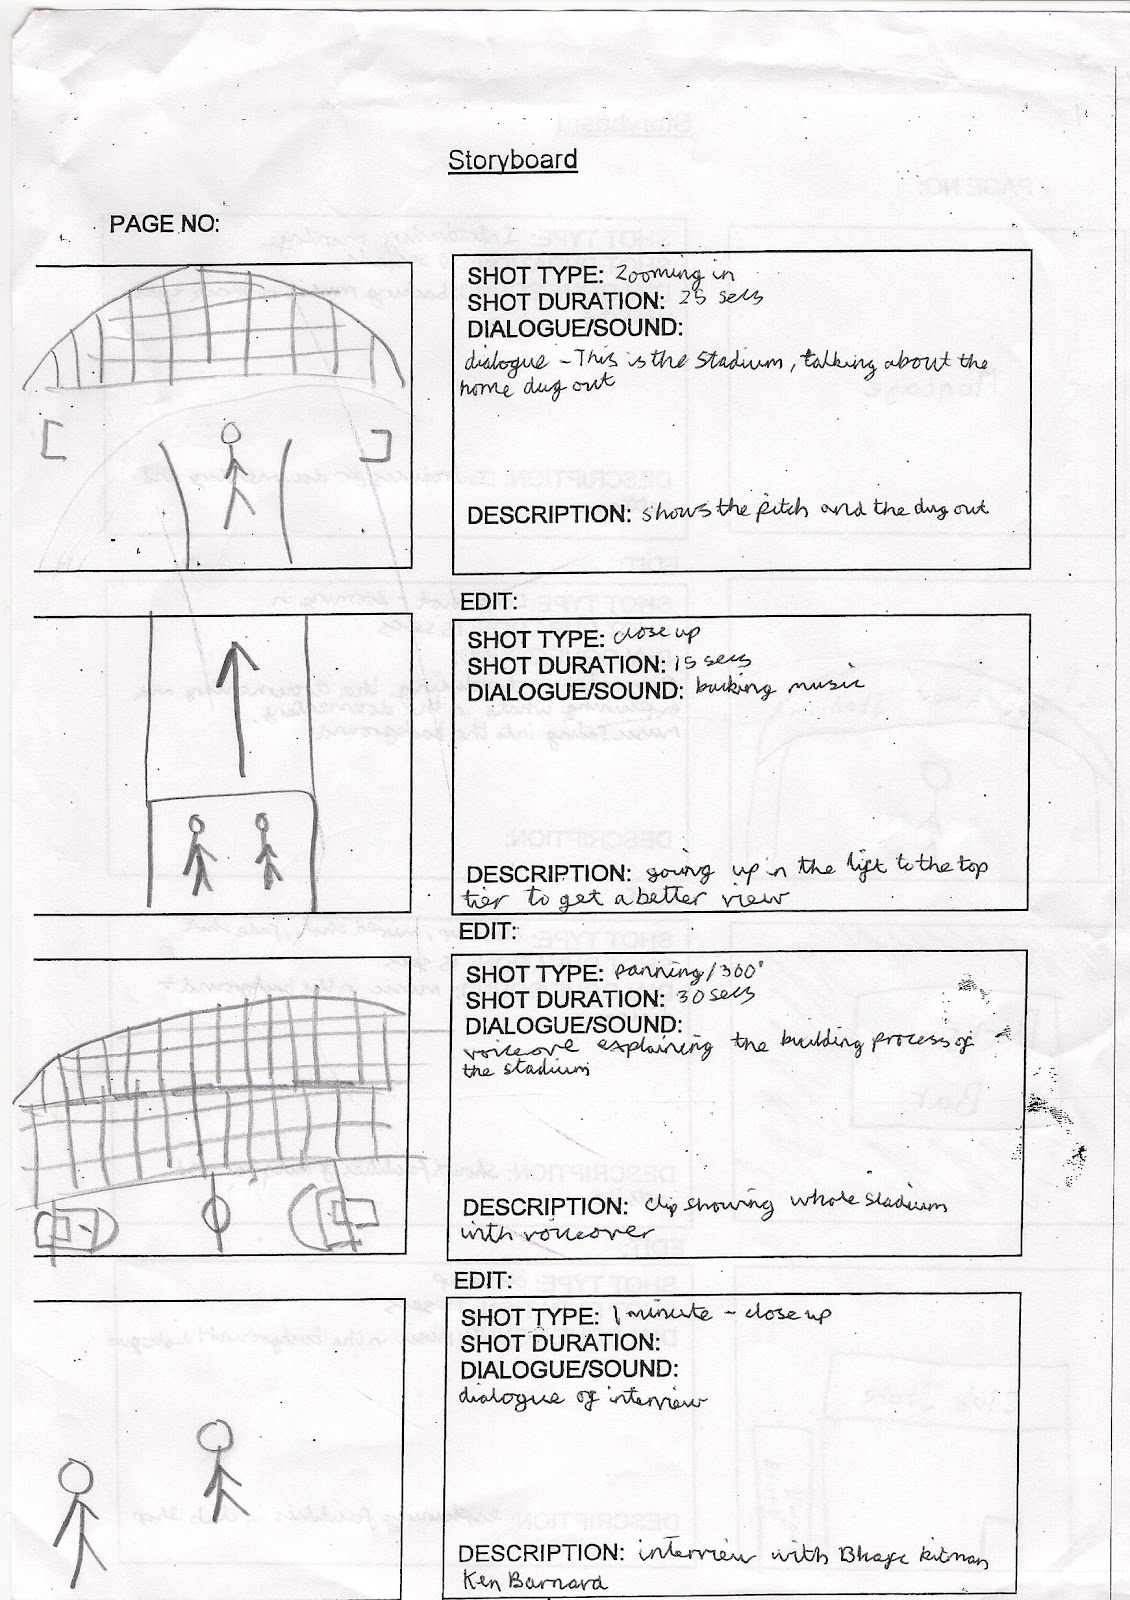 Storyboard
PAGE NO:
SHOT TYPE: Zooming in
SHOT DURATION: 25 secs
DIALOGUE/SOUND:
dialogue - This is the Stadium, talking about the
home dug out
DESCRIPTION: shows the pitch and the dug out
EDIT:
SHOT TYPE: close up
SHOT DURATION: 15 secs
DIALOGUE/SOUND: backing music
DESCRIPTION: going up in the lift to the top
tier to get a better view
EDIT:
SHOT TYPE: panning/360°
SHOT DURATION: 30 secs
DIALOGUE/SOUND:
voiceove explaining the building process of
the stadium
DESCRIPTION: clip showing whole stadium
with voiceover
EDIT:
SHOT TYPE: 1 minute - close up
SHOT DURATION:
DIALOGUE/SOUND:
dialogue of interview
DESCRIPTION: interview with kitman
Ken Barnard